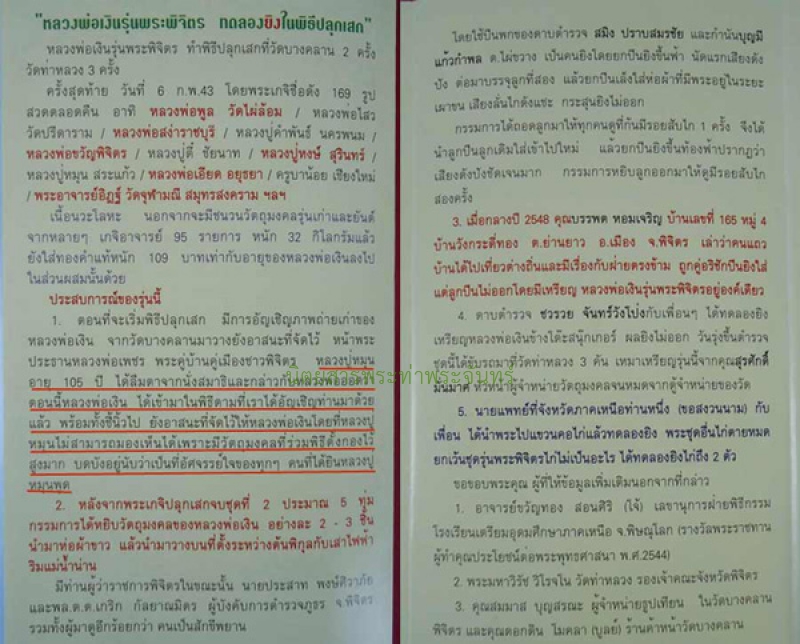 "หลวงพ่อเงินรุ่นพระพิจิตร ทดลองยิงในพิธีปลุกเสก"
หลวงพ่อเงินรุ่นพระพิจิตร ทำพิธีปลุกเสกที่วัดบางคลาน 2 ครั้ง
วัดท่าหลวง 3 ครั้ง
ครั้งสุดท้าย วันที่ 6 ก.พ.43 โดยพระเกจิชื่อดัง 169 รูป
สวดตลอดคืน อาทิ หลวงพ่อพูล วัดไผ่ล้อม / หลวงพ่อไสว
วัดปรีดาราม / หลวงพ่อสง่าราชบุรี / หลวงปู่คำพันธ์ นครพนม /
หลวงพ่อขวัญพิจิตร / หลวงปู่ตี๋ ชัยนาท / หลวงปู่หงษ์ สุรินทร์ /
หลวงปู่หมุน สระแก้ว / หลวงพ่อเอียด อยุธยา / ครูบาน้อย เชียงใหม่
/ พระอาจารย์อิฏฐ์ วัดจุฬามณี สมุทรสงคราม ฯลฯ
เนื้อนวะโลหะ นอกจากจะมีชนวนวัตถุมงคลรุ่นเก่าและยันต์
จากหลายๆ เกจิอาจารย์ 95 รายการ หนัก 32 กิโลกรัมแล้ว
ยังใส่ทองคำแท้หนัก 109 บาทเท่ากับอายุของหลวงพ่อเงินลงไป
ในส่วนผสมนั้นด้วย
ประสบการณ์ของรุ่นนี้
1. ตอนที่จะเริ่มพิธีปลุกเสก มีการอัญเชิญภาพถ่ายเก่าของ
หลวงพ่อเงิน จากวัดบางคลานมาวางยังอาสนะที่จัดไว้ หน้าพระ
ประธานหลวงพ่อเพชร พระคู่บ้านคู่เมืองชาวพิจิตร หลวงปู่หมุน
อายุ 105 ปี ได้ลืมตาจากนั่งสมาธิและกล่าวกับหลวงพ่อออดว่า
ตอนนี้หลวงพ่อเงิน ได้เข้ามาในพิธีตามที่เราได้อัญเชิญท่านมาด้วย
แล้ว พร้อมทั้งชี้นิ้วไป ยังอาสนะที่จัดไว้ให้หลวงพ่อเงินโดยที่หลวงปู่
หมุนไม่สามารถมองเห็นได้เพราะมีวัตถุมงคลที่ร่วมพิธีตั้งกองไว้
สูงมาก บดบังอยู่นับว่าเป็นที่อัศจรรย์ใจของทุกๆ คนที่ได้ยินหลวงปู่
หมุนพูด
2. หลังจากพระเกจิปลุกเสกจบชุดที่ 2 ประมาณ 5 ทุ่ม
กรรมการได้หยิบวัตถุมงคลของหลวงพ่อเงิน อย่างละ 2 - 3 ชิ้น
นำมาห่อผ้าขาว แล้วนำมาวางบนที่ตั้งระหว่างต้นพิกุลกับเสาไฟฟ้า
ริมแม่น้ำน่าน
มีท่านผู้ว่าราชการพิจิตรในขณะนั้น นายประสาท พงษ์ศิวาภัย
และพล.ต.ต.เกริก กัลยาณมิตร ผู้บังคับการตำรวจภูธร จ.พิจิตร
รวมทั้งผู้มาดูอีกร้อยกว่า คนเป็นสักขีพยาน
โดยใช้ปืนพกของดาบตำรวจ สมิง ปราบสมรชัย และกำนันบุญมี
แก้วกำพล ต.ไผ่ขวาง เป็นคนยิงโดยยกปืนยิงขึ้นฟ้า นัดแรกเสียงดัง
ปัง ต่อมาบรรจุลูกที่สอง แล้วยกปืนเล็งใส่ห่อผ้าที่มีพระอยู่ในระยะ
เผาขน เสียงลั่นไกดังแชะ กระสุนยิงไม่ออก
กรรมการได้ถอดลูกมาให้ทุกคนดูที่ก้นมีรอยสับไก 1 ครั้ง จึงได้
นำลูกปืนลูกเดิมใส่เข้าไปใหม่ แล้วยกปืนยิงขึ้นท้องฟ้าปรากฏว่า
เสียงดังปังชัดเจนมาก กรรมการหยิบลูกออกมาให้ดูมีรอยสับไก
สองครั้ง
3. เมื่อกลางปี 2548 คุณบรรพต หอมเจริญ บ้านเลขที่ 165 หมู่ 4
บ้านวังกระดี่ทอง ต.ย่านยาว อ.เมือง จ.พิจิตร เล่าว่าคนแถว
บ้านได้ไปเที่ยวต่างถิ่นและมีเรื่องกับฝ่ายตรงข้าม ถูกคู่อริชักปืนยิงใส่
แต่ลูกปืนไม่ออกโดยมีเหรียญ หลวงพ่อเงินรุ่นพระพิจิตรอยู่องค์เดียว
4. ดาบตำรวจ ชวรวย จันทร์วังโป่งกับเพื่อนๆ ได้ทดลองยิง
เหรียญหลวงพ่อเงินข้างโต๊ะสนุ๊กเกอร์ ผลยิงไม่ออก วันรุ่งขึ้นตำรวจ
ชุดนี้ได้ขับรถมาที่วัดท่าหลวง 3 คัน เหมาเหรียญรุ่นนี้จากคุณสุรศักดิ์
มั่นมาศ หัวหน้าผู้จำหน่ายวัตถุมงคลจนหมดจากตู้จำหน่ายของวัด
5. นายแพทย์ที่จังหวัดภาคเหนือท่านหนึ่ง (ขอสงวนนาม) กับ
เพื่อน ได้นำพระไปแขวนคอไก่แล้วทดลองยิง พระชุดอื่นไก่ตายหมด
ยกเว้นชุดรุ่นพระพิจิตรไก่ไม่เป็นอะไร ได้ทดลองยิงไก่ถึง 2 ตัว
ขอขอบพระคุณ ผู้ที่ให้ข้อมูลเพิ่มเติมนอกจากที่กล่าว
1. อาจารย์ขวัญทอง สอนศิริ (โจ้) เลขานุการฝ่ายพิธีกรรม
โรงเรียนเตรียมอุดมศึกษาภาคเหนือ จ.พิษณุโลก (รางวัลพระราชทาน
ผู้ทำคุณประโยชน์ต่อพระพุทธศาสนา พ.ศ.2544)
2. พระมหาวิรัช วิโรจโน วัดท่าหลวง รองเจ้าคณะจังหวัดพิจิตร
3. คุณสมมาส บุญสรณะ ผู้จำหน่ายธูปเทียน ในวัดบางคลาน
พิจิตร และคุณดอกดิน โมคลา (บูลย์) ร้านค้าหน้าวัดบางคลาน
นิตยสารพระท่าพระจันทร์